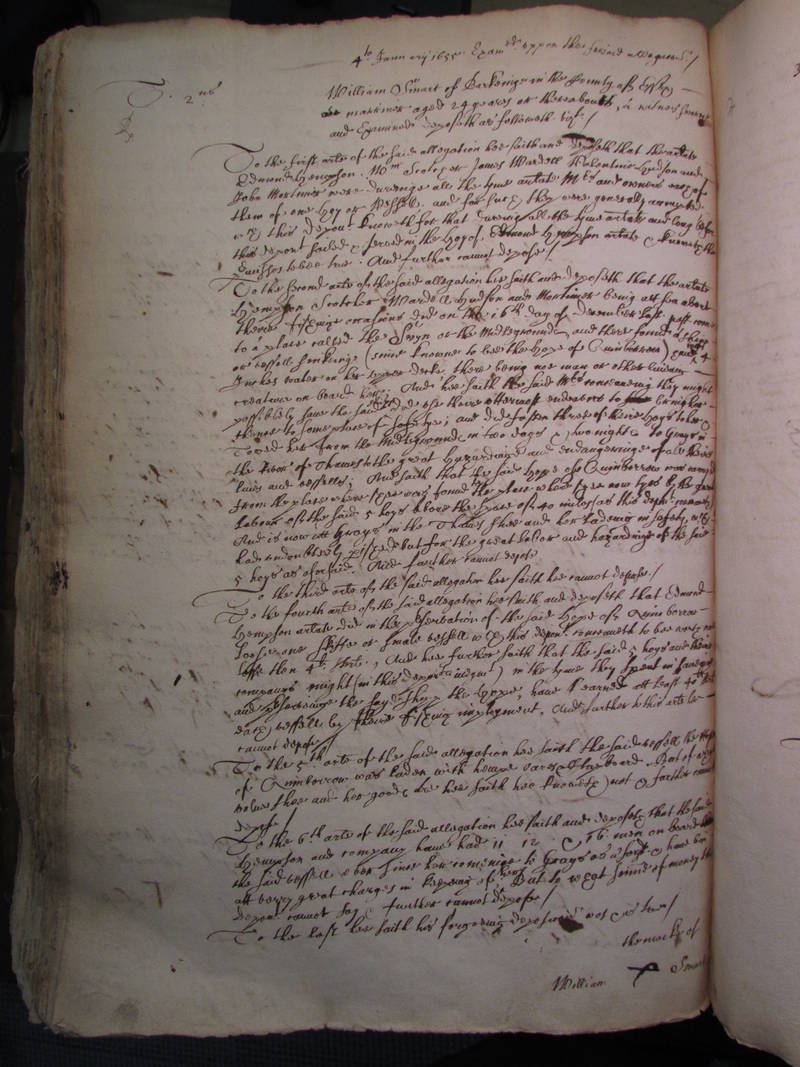 4th January 1655. Examed. uppon the said allegacon./
2us
William Smart of Barkeinge in the County of Essex
mariner aged 24 yeares or thereabouts, a witnes sworne
and Examined deposeth as followeth vizt./
To the first arle of the said allegation hee saith and deposeth that the arlate
Edmond Hempson. Wm Scotcher James Wardell Valentine Hudson and
John Mortimer were duringe all the tyme arlate Mrs and owners each of
them of one Hoy or vessell, and for such they were generally accounted
wch this depont knoweth for that during all the tyme arlate and long before
this depont sailed & served in the Hoy of Edmond Hempson arlate & knoweth the
to bee true. And further cannot depose/
To the second arle of the said allegation hee saith and deposeth that the arlate
Hempson Scotcher Wardell Hudson and Mortimer being att sea about
theire fishing occasions did on the 16th day of December last past come
to a place called the Swyn or the Middleground, and there found a shipp
or vessell sinking (since knowne to bee the Hope of Quinborrow) 4
water in her upper decke, there being noe man or other livinge
creature on board her. And hee saith the said Mrs conceaving they might
possibly save the said did use theire uttermost endeavors to bringe her
thence to some place of safetye; and did fasten three of their hoys to her &
Towed her from the Middleground in two dayes & two nights to Grays in
the River of Thames to the great Hazarding and endangeringe of all theire
lives and vessells; And saith that the said Hope of Quinborrow was carryed
from the place where shee was found to the place where shee now lyes by the
labour of the said 5 hoys above the space of 40 miles as this depont
And is now att Grays in the Thames shee and her ladeing in safety, wch
had undoubtedly perished but for the great labor and hazarding of the said
5 hoys as aforesaid. And further cannot depose
To the third arle of the said allegation hee saith hee cannot depose./
To the fourth arle of the said allegation hee saith and deposeth that Edmond
Hempson arlate did in the preservation of the said Hope of Quinborrow
loose one skiffe or small vessell wch this depont conceiveth to bee worth noe
lesse then 4li. And hee further saith that the said 5 hoys and their
companys might (in this deponts judgmt) in the tyme they spent in saving
and preserving the sayd shipp the Hope, have earned att least 40
each vessell by theire fishing imployment, And further to this arle hee
cannot depose/
To the 5th arle of the said allegation hee saith the said vessell the Hope
of Quinborrow was laden with hempe But of what
valew shee and her goods are hee saith hee knoweth not & farther cannot
depose/
To the 6th arle of the said allegation hee saith and deposeth that the said
Hempson and company haue had 11 12 & 16 men on board
the said vessell ever since her comeinge to Grays as aforesd & have bin
att verry great charges in keeping of them But to what summe of money this
depont cannot say & further cannot depose/
To the last hee saith his foregoeing deposicons was & is true/
the marke of
William Smart